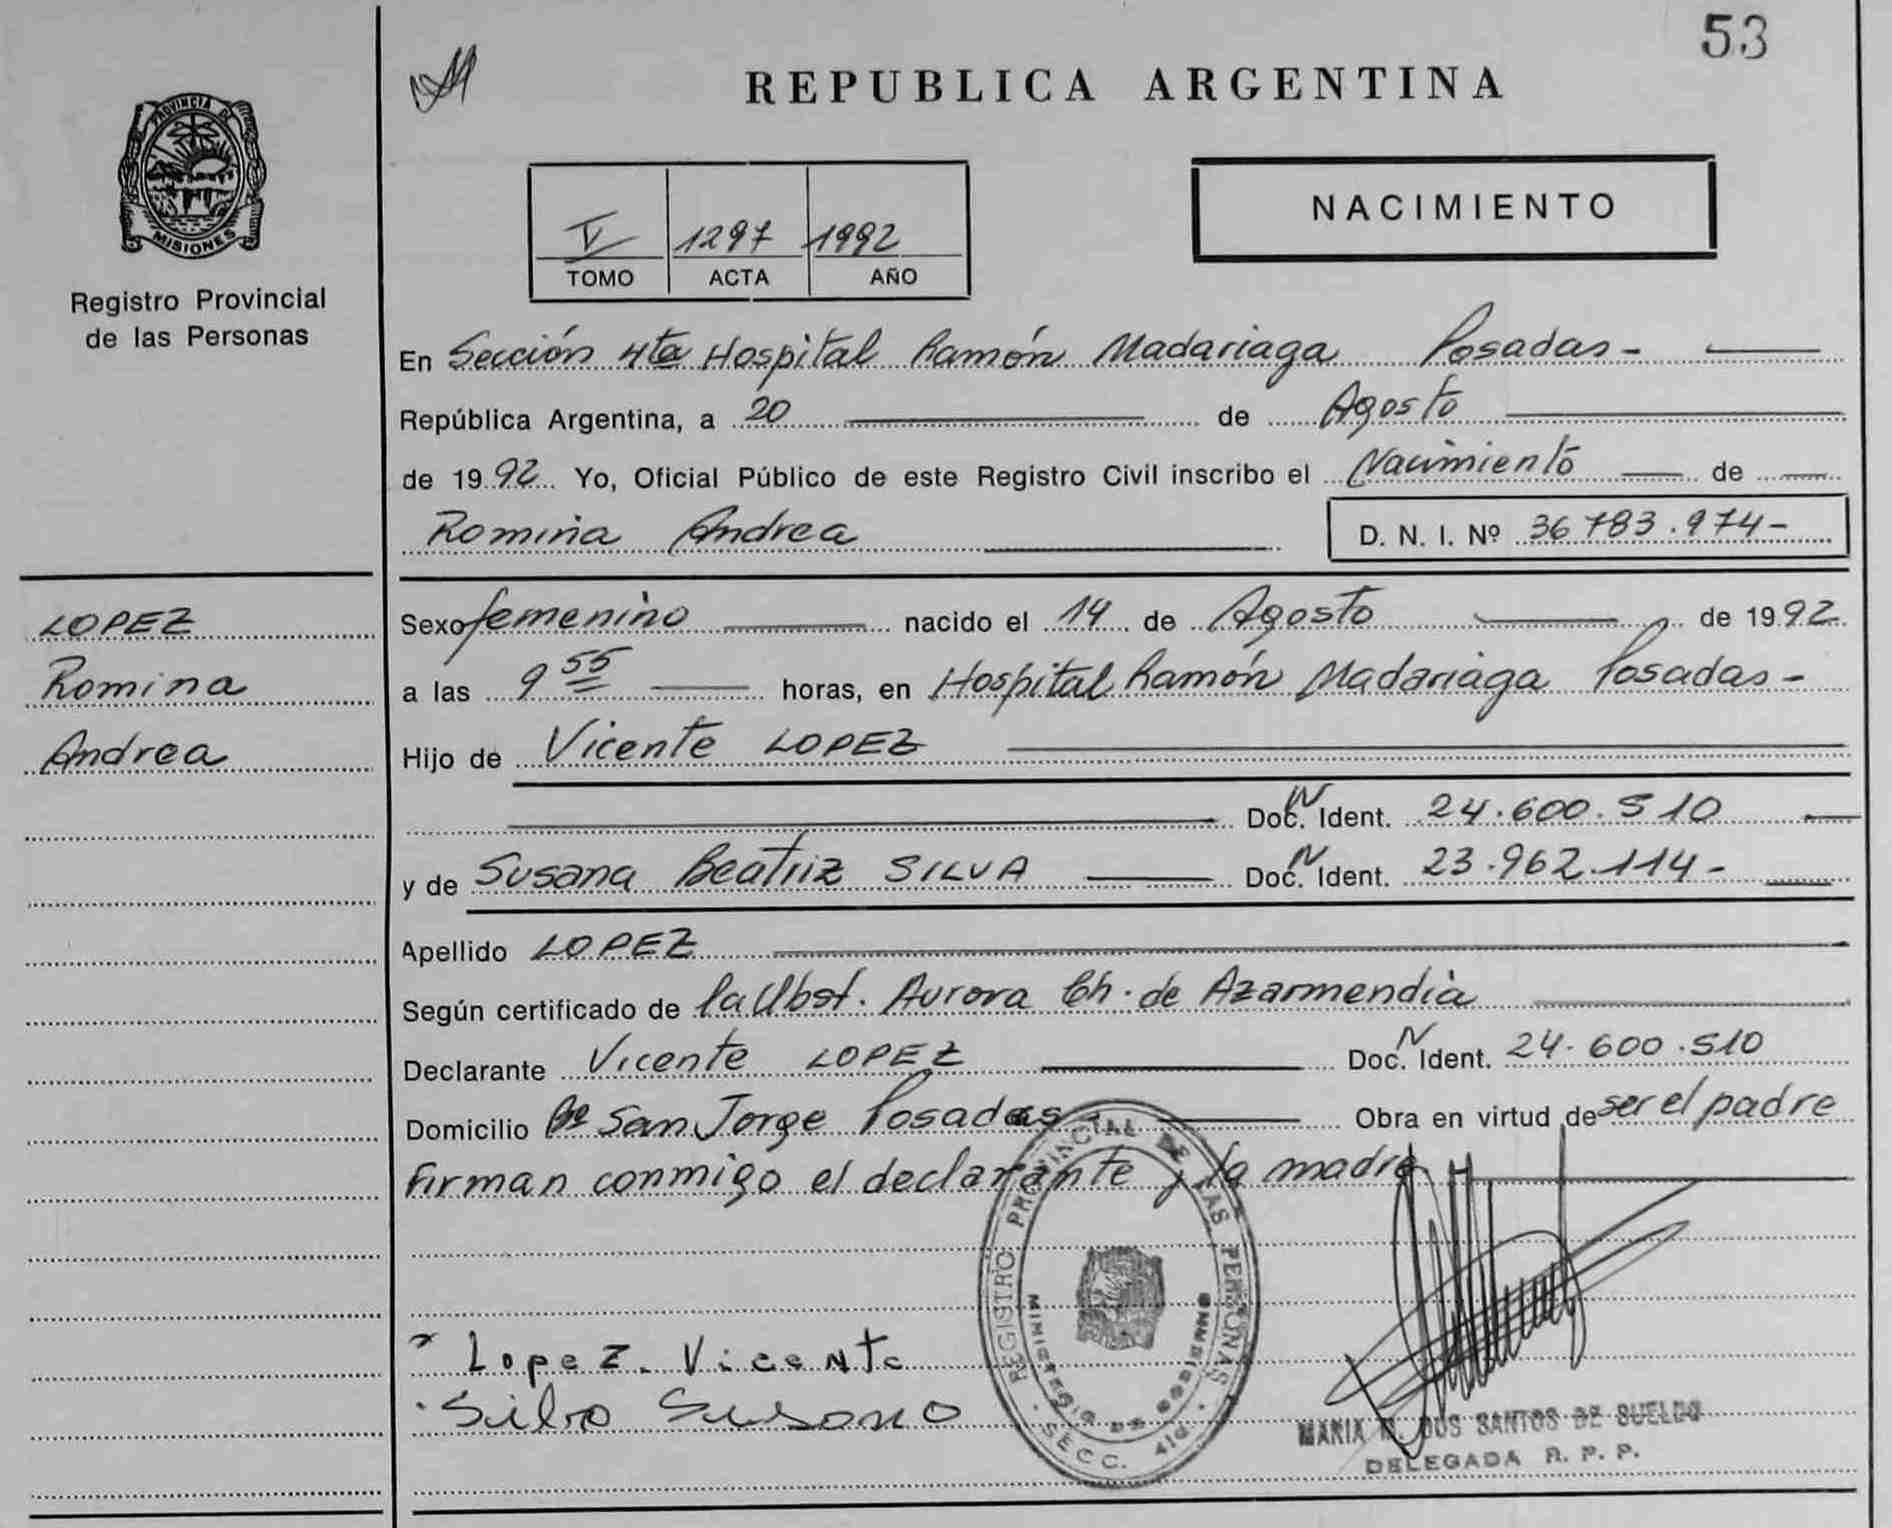 53
REPUBLICA ARGENTINA
PROVINCIA DE
MISIONES
Registro Provincial
de las Personas
NACIMIENTO
V 1297 1992
TOMO ACTA AÑO
En Sección 4ta Hospital Ramón Madariaga Posadas-
República Argentina, a 20 de Agosto
de 1992 Yo, Oficial Público de este Registro Civil inscribo el Nacimiento de
Romina Andrea D. N. I. Nº 36783.974-
LOPEZ
Romina
Andrea
Sexo femenino nacido el 14 de Agosto de 1992
a las 9 55 horas, en Hospital Ramón Madariaga Posadas-
Hijo de Vicente LOPEZ
Doc. N Ident. 24.600.510
y de Susana Beatriz SILVA Doc. N Ident. 23.962.114-
Apellido LOPEZ
Según certificado de la Obst. Aurora Ch. de Azarmendia
Declarante Vicente LOPEZ Doc. N Ident. 24.600.510
Domicilio Bº San Jorge Posadas Obra en virtud de ser el padre
firman conmigo el declarante y la madre
Lopez. Vicente
Silva Susana
REGISTRO PROVINCIAL DE LAS PERSONAS
MINISTERIO DE GOBIERNO
SECC. 4ta
MARIA DOS SANTOS DE SUELDO
DELEGADA R. P. P.